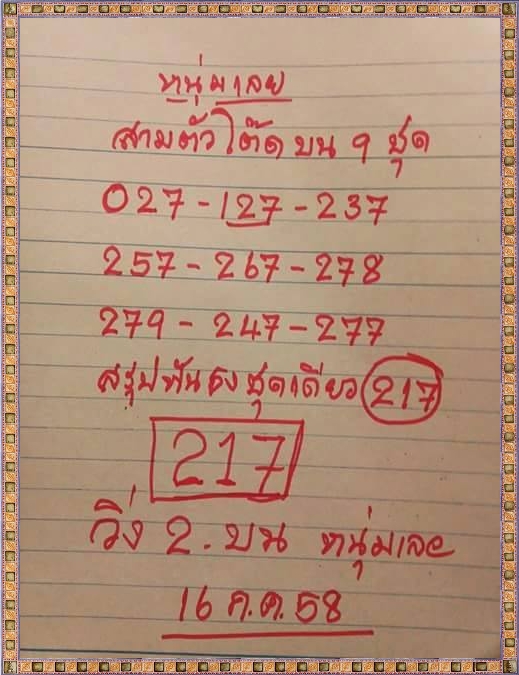 หนุ่มเลย
สามตัวโต๊ดบน 9 ชุด
027 - 127 - 237
257 - 267 - 278
279 - 247 - 277
สรุปฟันธงชุดเดียว 217
217
วิ่ง 2. บน หนุ่มเลย
16 ค.ค. 58